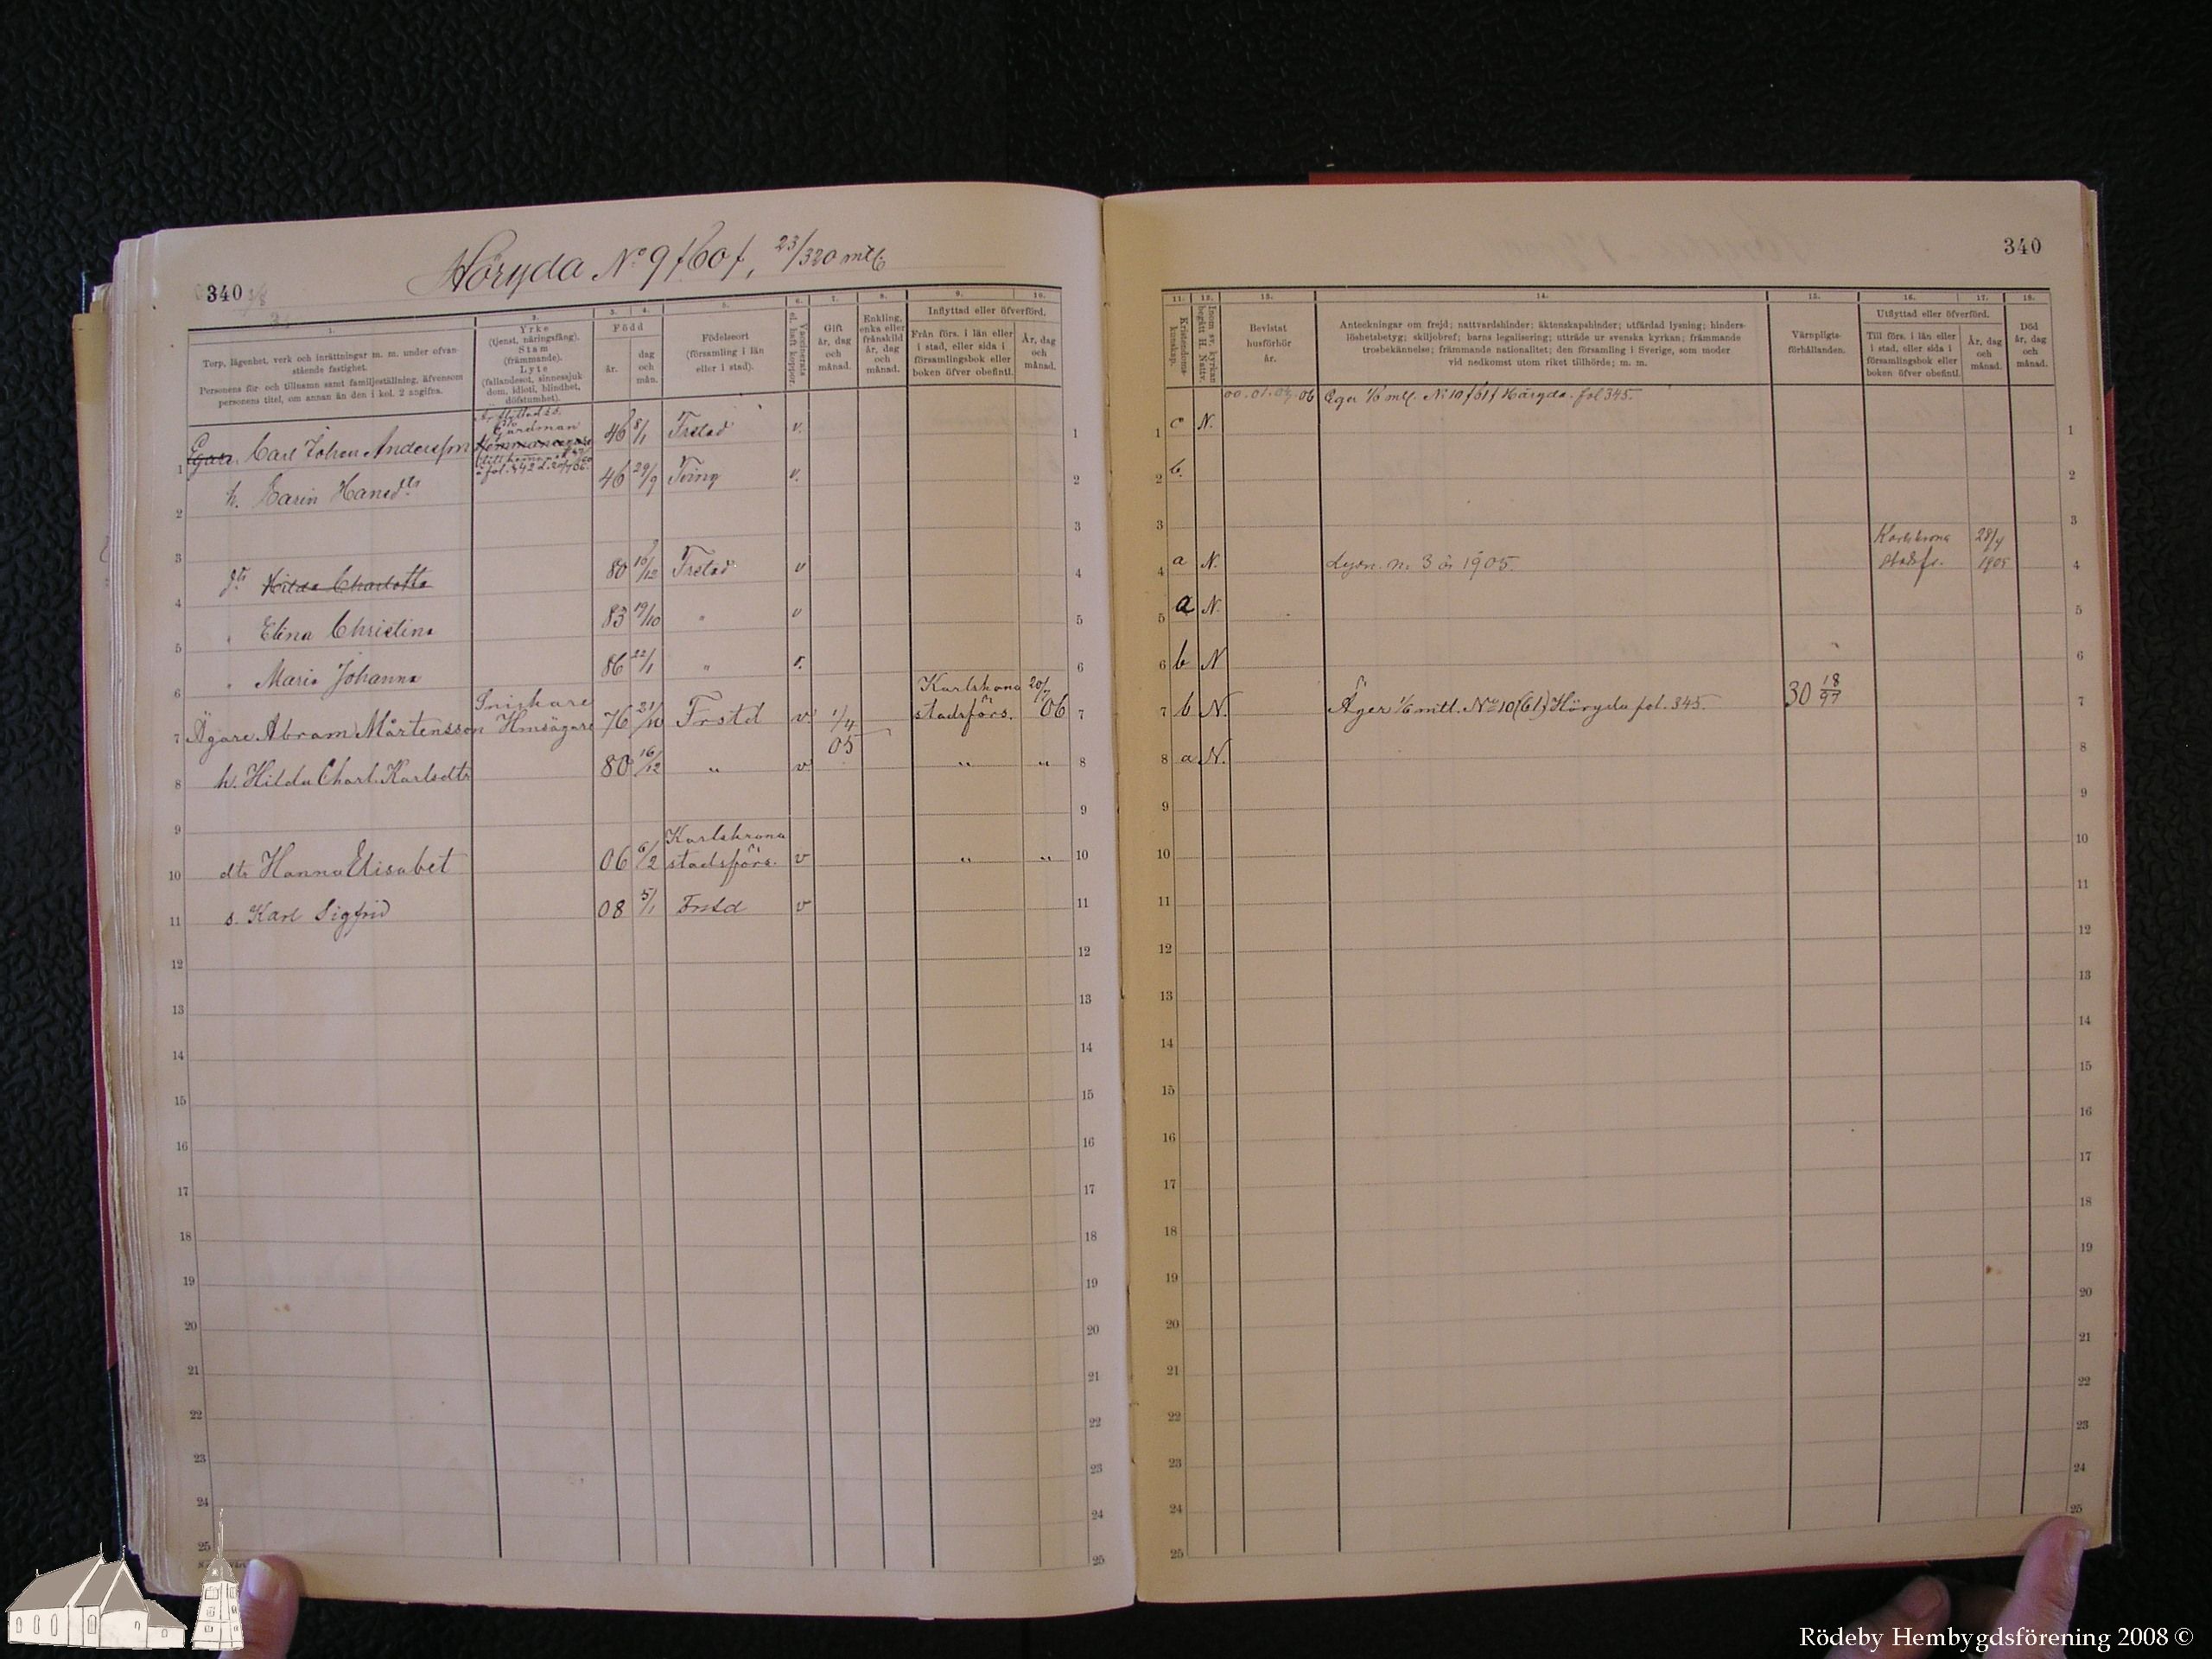 Höryda No 9 f60f, 23/320 mtl.
340
1.
Torp, lägenhet, verk och inrättningar m. m. under ofvan-
stående fastighet.
Personens för- och tillnamn samt familjeställning, äfvensom
personens titel, om annan än den i kol. 2 angifna.
2.
Yrke
(tjenst, näringsfång).
Stam
(främmande).
Lyte
(fallandesot, sinnessjuk
dom, idioti, blindhet,
döfstumhet).
3. 4.
Född
år.
dag
och
mån.
5.
Födelseort
(församling i län
eller i stad).
6.
Vaccinerats
el. haft koppor.
7.
Gift
år, dag
och
månad.
8.
Enkling,
enka eller
frånskild
år, dag
och
månad.
9. 10.
Inflyttad eller öfverförd.
Från förs. i län eller
i stad, eller sida i
församlingsbok eller
boken öfver obefintl.
År, dag
och
månad.
1 Egare Carl Johan Andersson Gårdman Hemmansägare 46 8/1 Frstad v. 1
2 h. Karin Hansdtr 46 29/9 Tving v. 2
3 3
4 dtr Hilda Charlotta 80 16/12 Frstad v 4
5 " Elina Christina 83 19/10 " v 5
6 " Maria Johanna 86 22/1 " v. 6
Snickare Karlskrona 20/
7 Ägare Abram Mårtensson Hmsägare 76 21/10 Frstd v 1/4 05 stadsförs. 06 7
8 h. Hilda Charl. Karlsdtr 80 16/12 " v " " 8
9 9
Karlskrona
10 dtr Hanna Elisabet 06 6/2 stadsförs. v " " 10
11 s. Karl Sigfrid 08 5/1 Frstd v 11
12 12
13 13
14 14
15 15
16 16
17 17
18 18
19 19
20 20
21 21
22 22
23 23
24 24
25 25
340
11.
Kristendoms-
kunskap.
12.
Inom sv. kyrkan
begått H. Nattv.
13.
Bevistat
husförhör
år.
14.
Anteckningar om frejd; nattvardshinder; äktenskapshinder; utfärdad lysning; hinders-
löshetsbetyg; skiljebref; barns legalisering; utträde ur svenska kyrkan; främmande
trosbekännelse; främmande nationalitet; den församling i Sverige, som moder
vid nedkomst utom riket tillhörde; m. m.
15.
Värnpligts-
förhållanden.
16. 17.
Utflyttad eller öfverförd.
Till förs. i län eller
i stad, eller sida i
församlingsbok eller
boken öfver obefintl.
År, dag
och
månad.
18.
Död
år, dag
och
månad.
1 c N. 00. 01. 06 Eger 1/6 mtl. No 10 f61f Höryda. fol 345. 1
2 b. 2
3 3
Karlskrona 28/4
4 a N. Lysn. n. 3 år 1905. stadsfs. 1905 4
5 a N. 5
6 b N 6
7 b N. Äger 1/6 mtl. No 10 (61) Höryda fol. 345. 30 18/97
8 a N. 8
9 9
10 10
11 11
12 12
13 13
14 14
15 15
16 16
17 17
18 18
19 19
20 20
21 21
22 22
23 23
24 24
25 25
Rödeby Hembygdsförening 2008 ©